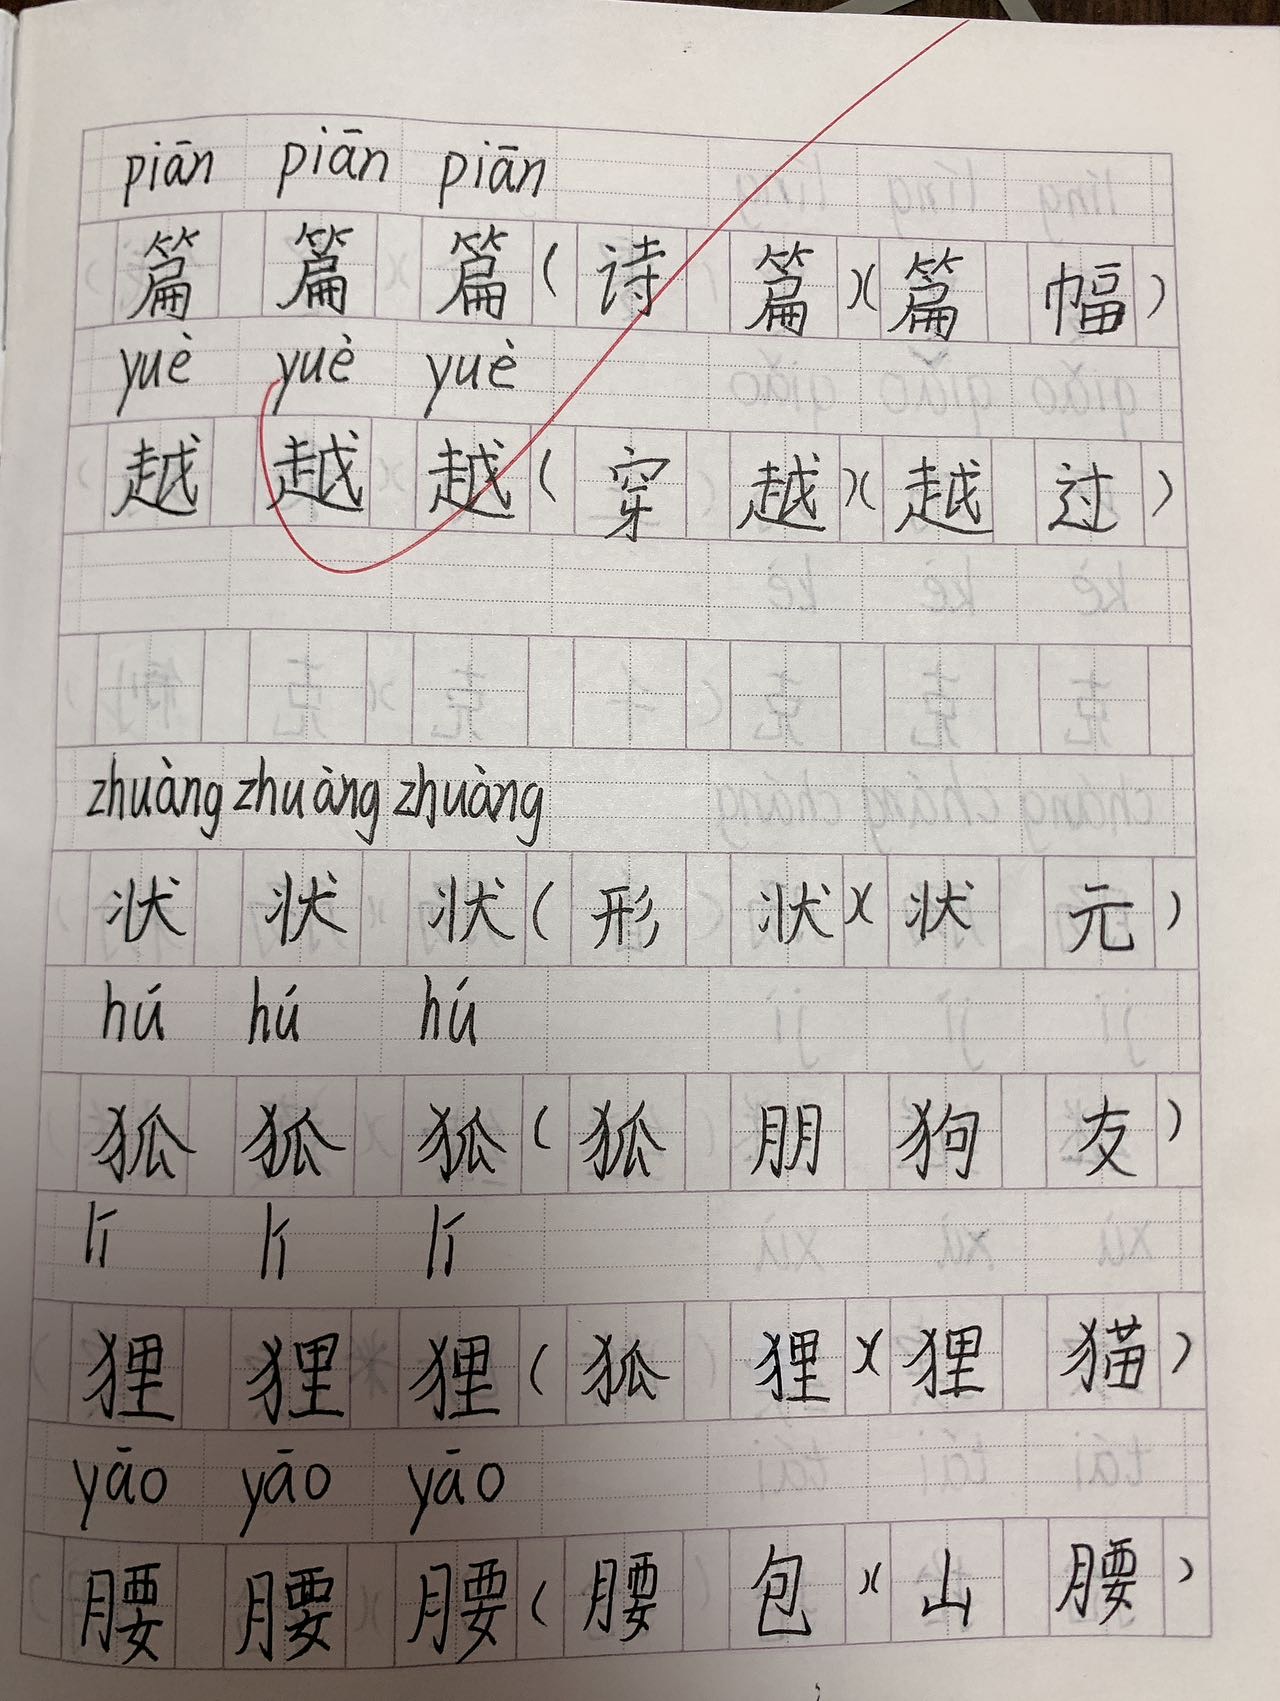 piān piān piān
篇 篇 篇 ( 诗 篇 )( 篇 幅 )
yuè yuè yuè
越 越 越 ( 穿 越 )( 越 过 )
zhuàng zhuàng zhuàng
状 状 状 ( 形 状 )( 状 元 )
hú hú hú
狐 狐 狐 ( 狐 朋 狗 友 )
lí lí lí
狸 狸 狸 ( 狐 狸 )( 狸 猫 )
yāo yāo yāo
腰 腰 腰 ( 腰 包 )( 山 腰 )